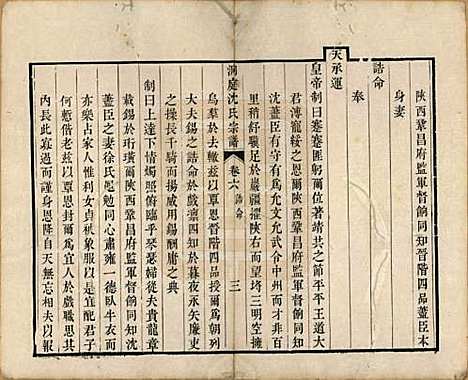 陝西鞏昌府監軍督餉同知晉階四品藎臣本
身妻
誥命
奉
天承運
皇帝制曰蹇蹇匪躬爾位著靖共之節平平王道大
君溥寵綏之恩爾陝西鞏昌府監軍督餉同知
沈藎臣有守有為允文允武令中州而才非百
里稍舒驥足於巖疆擢陝右而望埒三明空擁
洞庭沈氏宗譜 卷六 誥命 三
烏羣於去轍茲以覃恩晉階四品爲朝列
大夫夫錫之誥命於戲四知於暮夜承矢廉吏
之操長千騎而揚威用錫酬庸之典
制曰上達下情爾俯臨乎琴瑟婦從夫貴龍章
載錫於珩璜爾陝西鞏昌府監軍督餉同知沈
藎臣之妻徐氏勉卹同心肅雍一德臥牛衣而
亦樂占家惟利女貞秡象服以是宜配君子
何慙偕老茲以覃恩封爾爲宜人於戲職思
內長此寡過而謹身恩隆自天無忘相夫以報